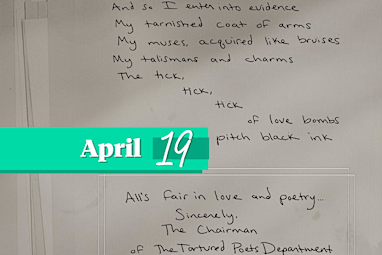 And so I enter into evidence
My tarnished coat of arms
My muses, acquired like bruises
My talismans and charms
The tick,
tick,
tick
of love bombs
April 19
pitch black ink
All's fair in love and poetry...
Sincerely,
The Chairman
of The Tortured Poets Department